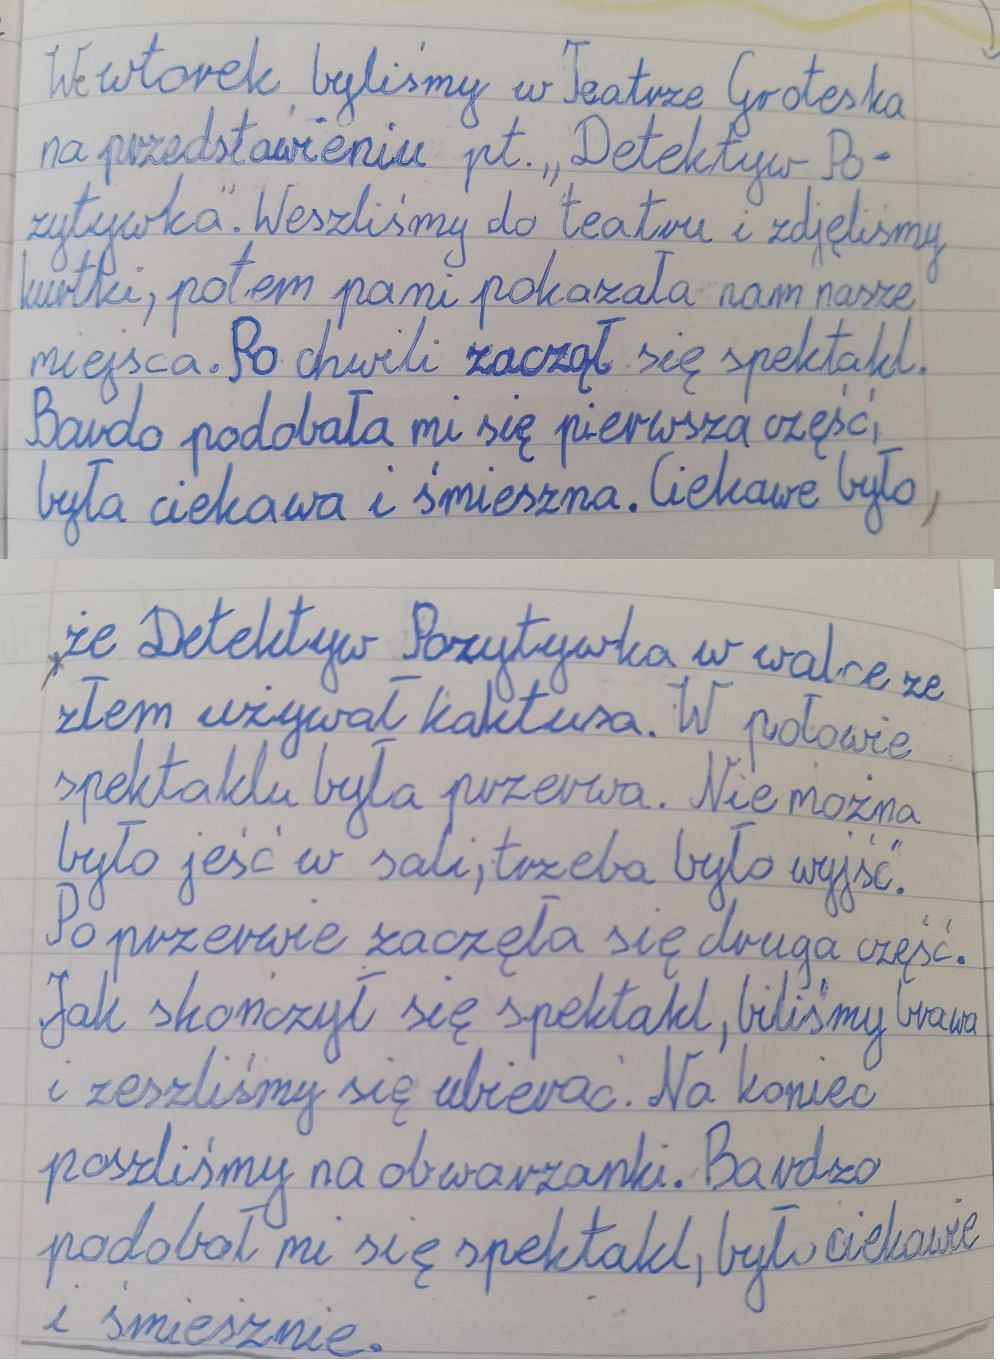 We wtorek byliśmy w Teatrze Groteska
na przedstawieniu pt. „Detektyw Po-
zytywka". Weszliśmy do teatru i zdjęliśmy
kurtki, potem pani pokazała nam nasze
miejsca. Po chwili zaczął się spektakl.
Bardo podobała mi się pierwsza część,
była ciekawa i śmieszna. Ciekawe było,
że Detektyw Pozytywka w walce ze
złem używał kaktusa. W połowie
spektaklu była przerwa. Nie można
było jeść w sali, trzeba było wyjść.
Po przerwie zaczęła się druga część.
Jak skończył się spektakl, biliśmy brawa
i zeszliśmy się ubierać. Na koniec
poszliśmy na obwarzanki. Bardzo
podobał mi się spektakl, było ciekawie
i śmiesznie.